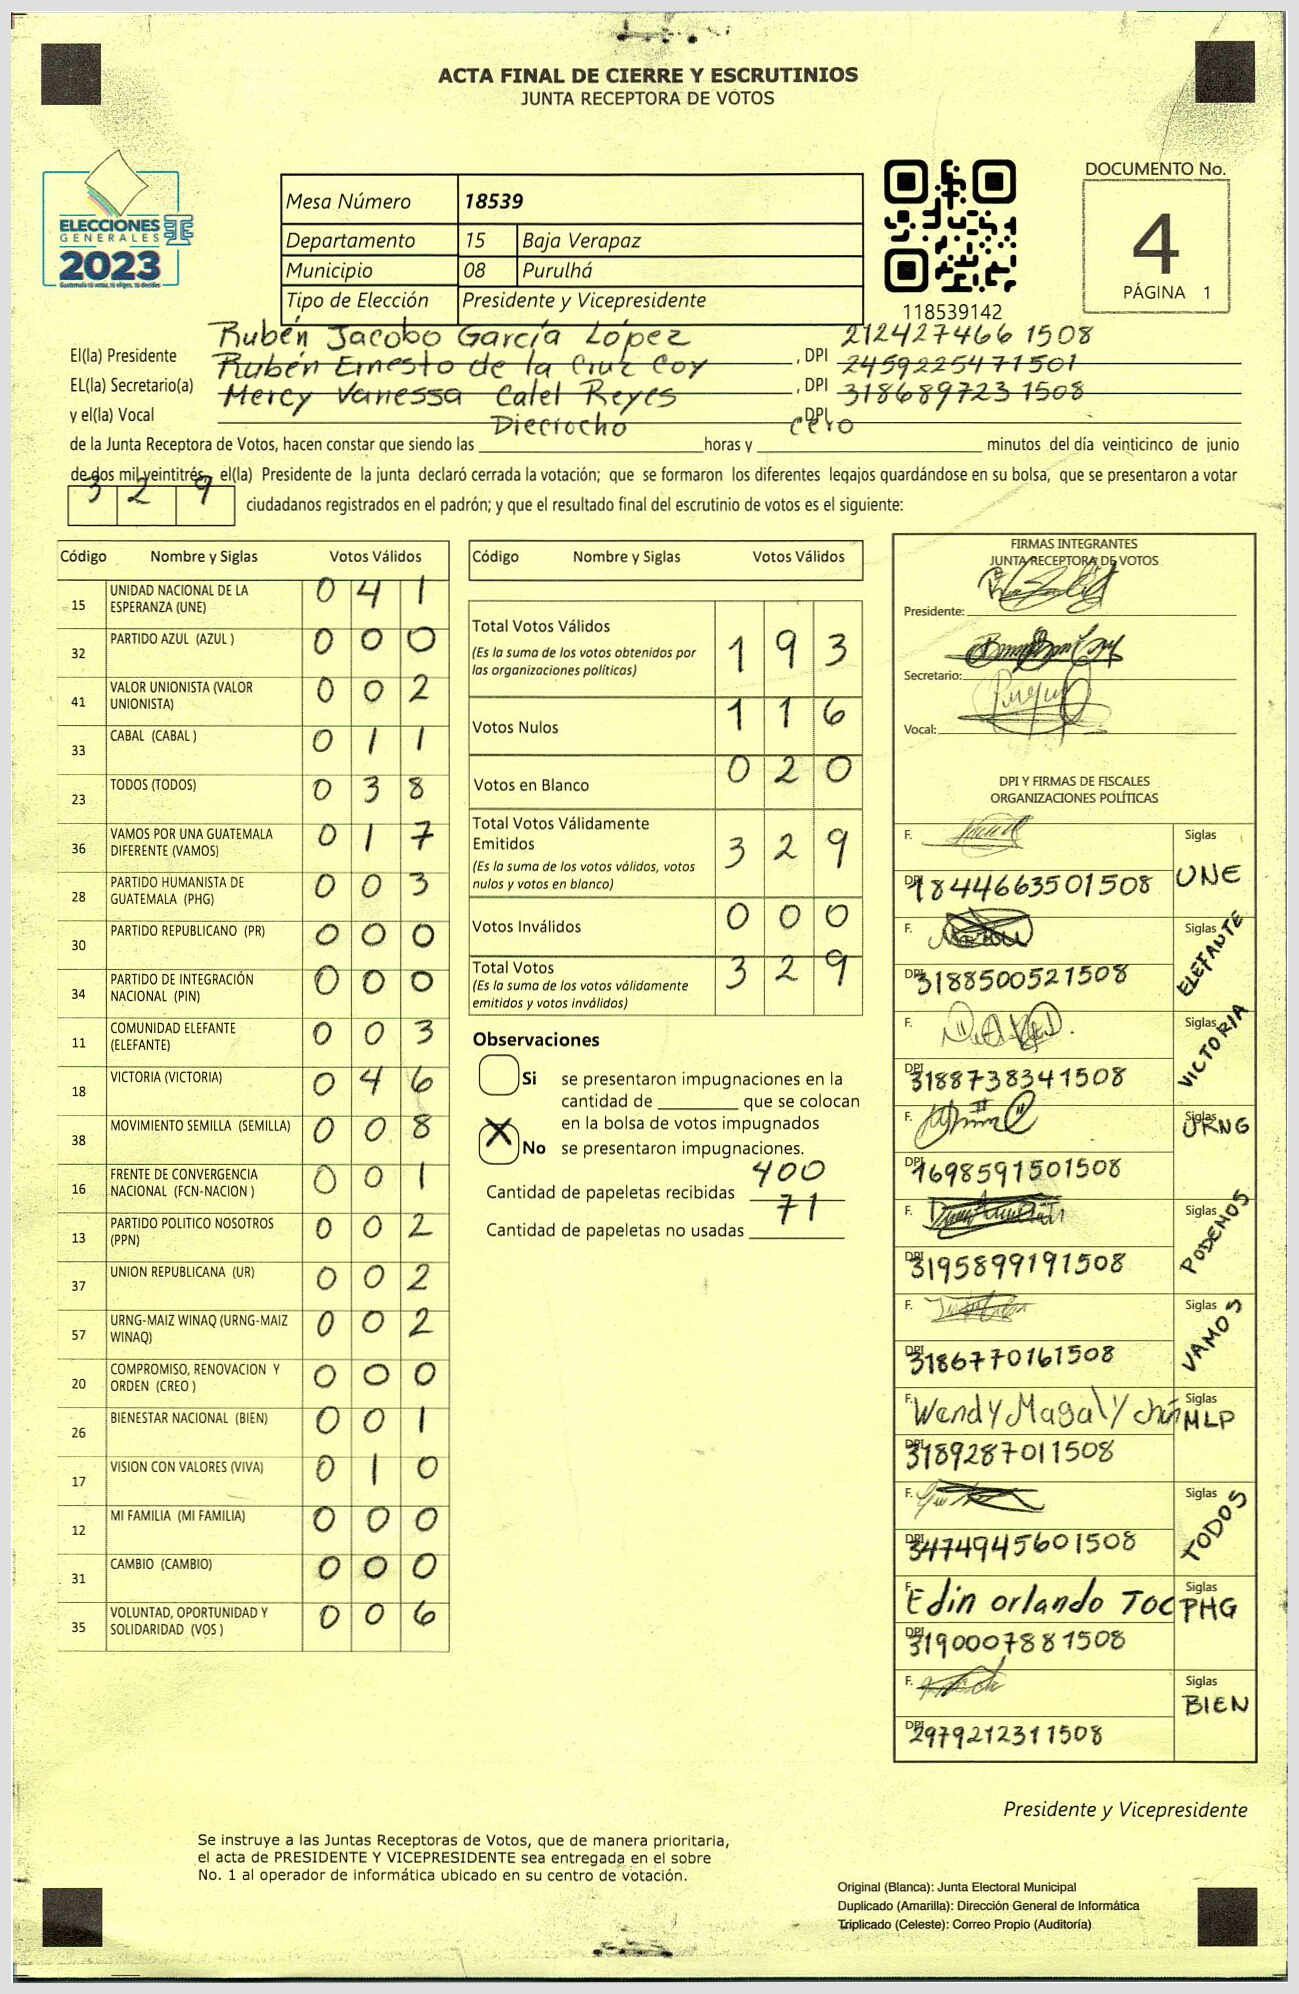 ACTA FINAL DE CIERRE Y ESCRUTINIOS
JUNTA RECEPTORA DE VOTOS
ELECCIONES
GENERALES
2023
Mesa Número 18539
Departamento 15 Baja Verapaz
Municipio 08 Purulhá
Tipo de Elección Presidente y Vicepresidente
118539142
DOCUMENTO No.
4
PÁGINA 1
El(la) Presidente Rubén Jacobo García López, DPI 212427466 1508
EL(la) Secretario(a) Rubén Ernesto de la Cruz Coy, DPI 2459225471501
y el(la) Vocal Mercy Vanessa Calel Reyes DPI 318689723 1508
de la Junta Receptora de Votos, hacen constar que siendo las Dieciocho horas y cero minutos del día veinticinco de junio
de dos mil veintitrés, el(la) Presidente de la junta declaró cerrada la votación; que se formaron los diferentes legajos quardándose en su bolsa, que se presentaron a votar
3 2 9 ciudadanos registrados en el padrón; y que el resultado final del escrutinio de votos es el siguiente:
Código Nombre y Siglas Votos Válidos
15 UNIDAD NACIONAL DE LA ESPERANZA (UNE) 0 4 1
32 PARTIDO AZUL (AZUL ) 0 0 0
41 VALOR UNIONISTA (VALOR UNIONISTA) 0 0 2
33 CABAL (CABAL ) 0 1 1
23 TODOS (TODOS) 0 3 8
36 VAMOS POR UNA GUATEMALA DIFERENTE (VAMOS) 0 1 7
28 PARTIDO HUMANISTA DE GUATEMALA (PHG) 0 0 3
30 PARTIDO REPUBLICANO (PR) 0 0 0
34 PARTIDO DE INTEGRACIÓN NACIONAL (PIN) 0 0 0
11 COMUNIDAD ELEFANTE (ELEFANTE) 0 0 3
18 VICTORIA (VICTORIA) 0 4 6
38 MOVIMIENTO SEMILLA (SEMILLA) 0 0 8
16 FRENTE DE CONVERGENCIA NACIONAL (FCN-NACION ) 0 0 1
13 PARTIDO POLITICO NOSOTROS (PPN) 0 0 2
37 UNION REPUBLICANA (UR) 0 0 2
57 URNG-MAIZ WINAQ (URNG-MAIZ WINAQ) 0 0 2
20 COMPROMISO, RENOVACION Y ORDEN (CREO ) 0 0 0
26 BIENESTAR NACIONAL (BIEN) 0 0 1
17 VISION CON VALORES (VIVA) 0 1 0
12 MI FAMILIA (MI FAMILIA) 0 0 0
31 CAMBIO (CAMBIO) 0 0 0
35 VOLUNTAD, OPORTUNIDAD Y SOLIDARIDAD (VOS ) 0 0 6
Código Nombre y Siglas Votos Válidos
Total Votos Válidos 1 9 3
(Es la suma de los votos obtenidos por
las organizaciones políticas)
Votos Nulos 1 1 6
Votos en Blanco 0 2 0
Total Votos Válidamente
Emitidos 3 2 9
(Es la suma de los votos válidos, votos
nulos y votos en blanco)
Votos Inválidos 0 0 0
Total Votos 3 2 9
(Es la suma de los votos válidamente
emitidos y votos inválidos)
Observaciones
Si se presentaron impugnaciones en la
cantidad de ________ que se colocan
en la bolsa de votos impugnados
X No se presentaron impugnaciones.
Cantidad de papeletas recibidas 400
Cantidad de papeletas no usadas 71
FIRMAS INTEGRANTES
JUNTA RECEPTORA DE VOTOS
Presidente:
Secretario:
Vocal:
DPI Y FIRMAS DE FISCALES
ORGANIZACIONES POLÍTICAS
F. Siglas
DPI 1844663501508 UNE
F. Siglas
DPI 3188500521508 ELEFANTE
F. Siglas
DPI 3188738341508 VICTORIA
F. Siglas
DPI 1698591501508 URNG
F. Siglas
DPI 3195899191508 PODEMOS
F. Siglas
DPI 3186770161508 VAMOS
F. Wendy Magaly Siglas
DPI 3189287011508 MLP
F. Siglas
DPI 3474945601508 TODOS
F. Edin orlando Toc Siglas
DPI 3190007881508 PHG
F. Siglas
DPI 2979212311508 BIEN
Presidente y Vicepresidente
Se instruye a las Juntas Receptoras de Votos, que de manera prioritaria,
el acta de PRESIDENTE Y VICEPRESIDENTE sea entregada en el sobre
No. 1 al operador de informática ubicado en su centro de votación.
Original (Blanca): Junta Electoral Municipal
Duplicado (Amarilla): Dirección General de Informática
Triplicado (Celeste): Correo Propio (Auditoría)